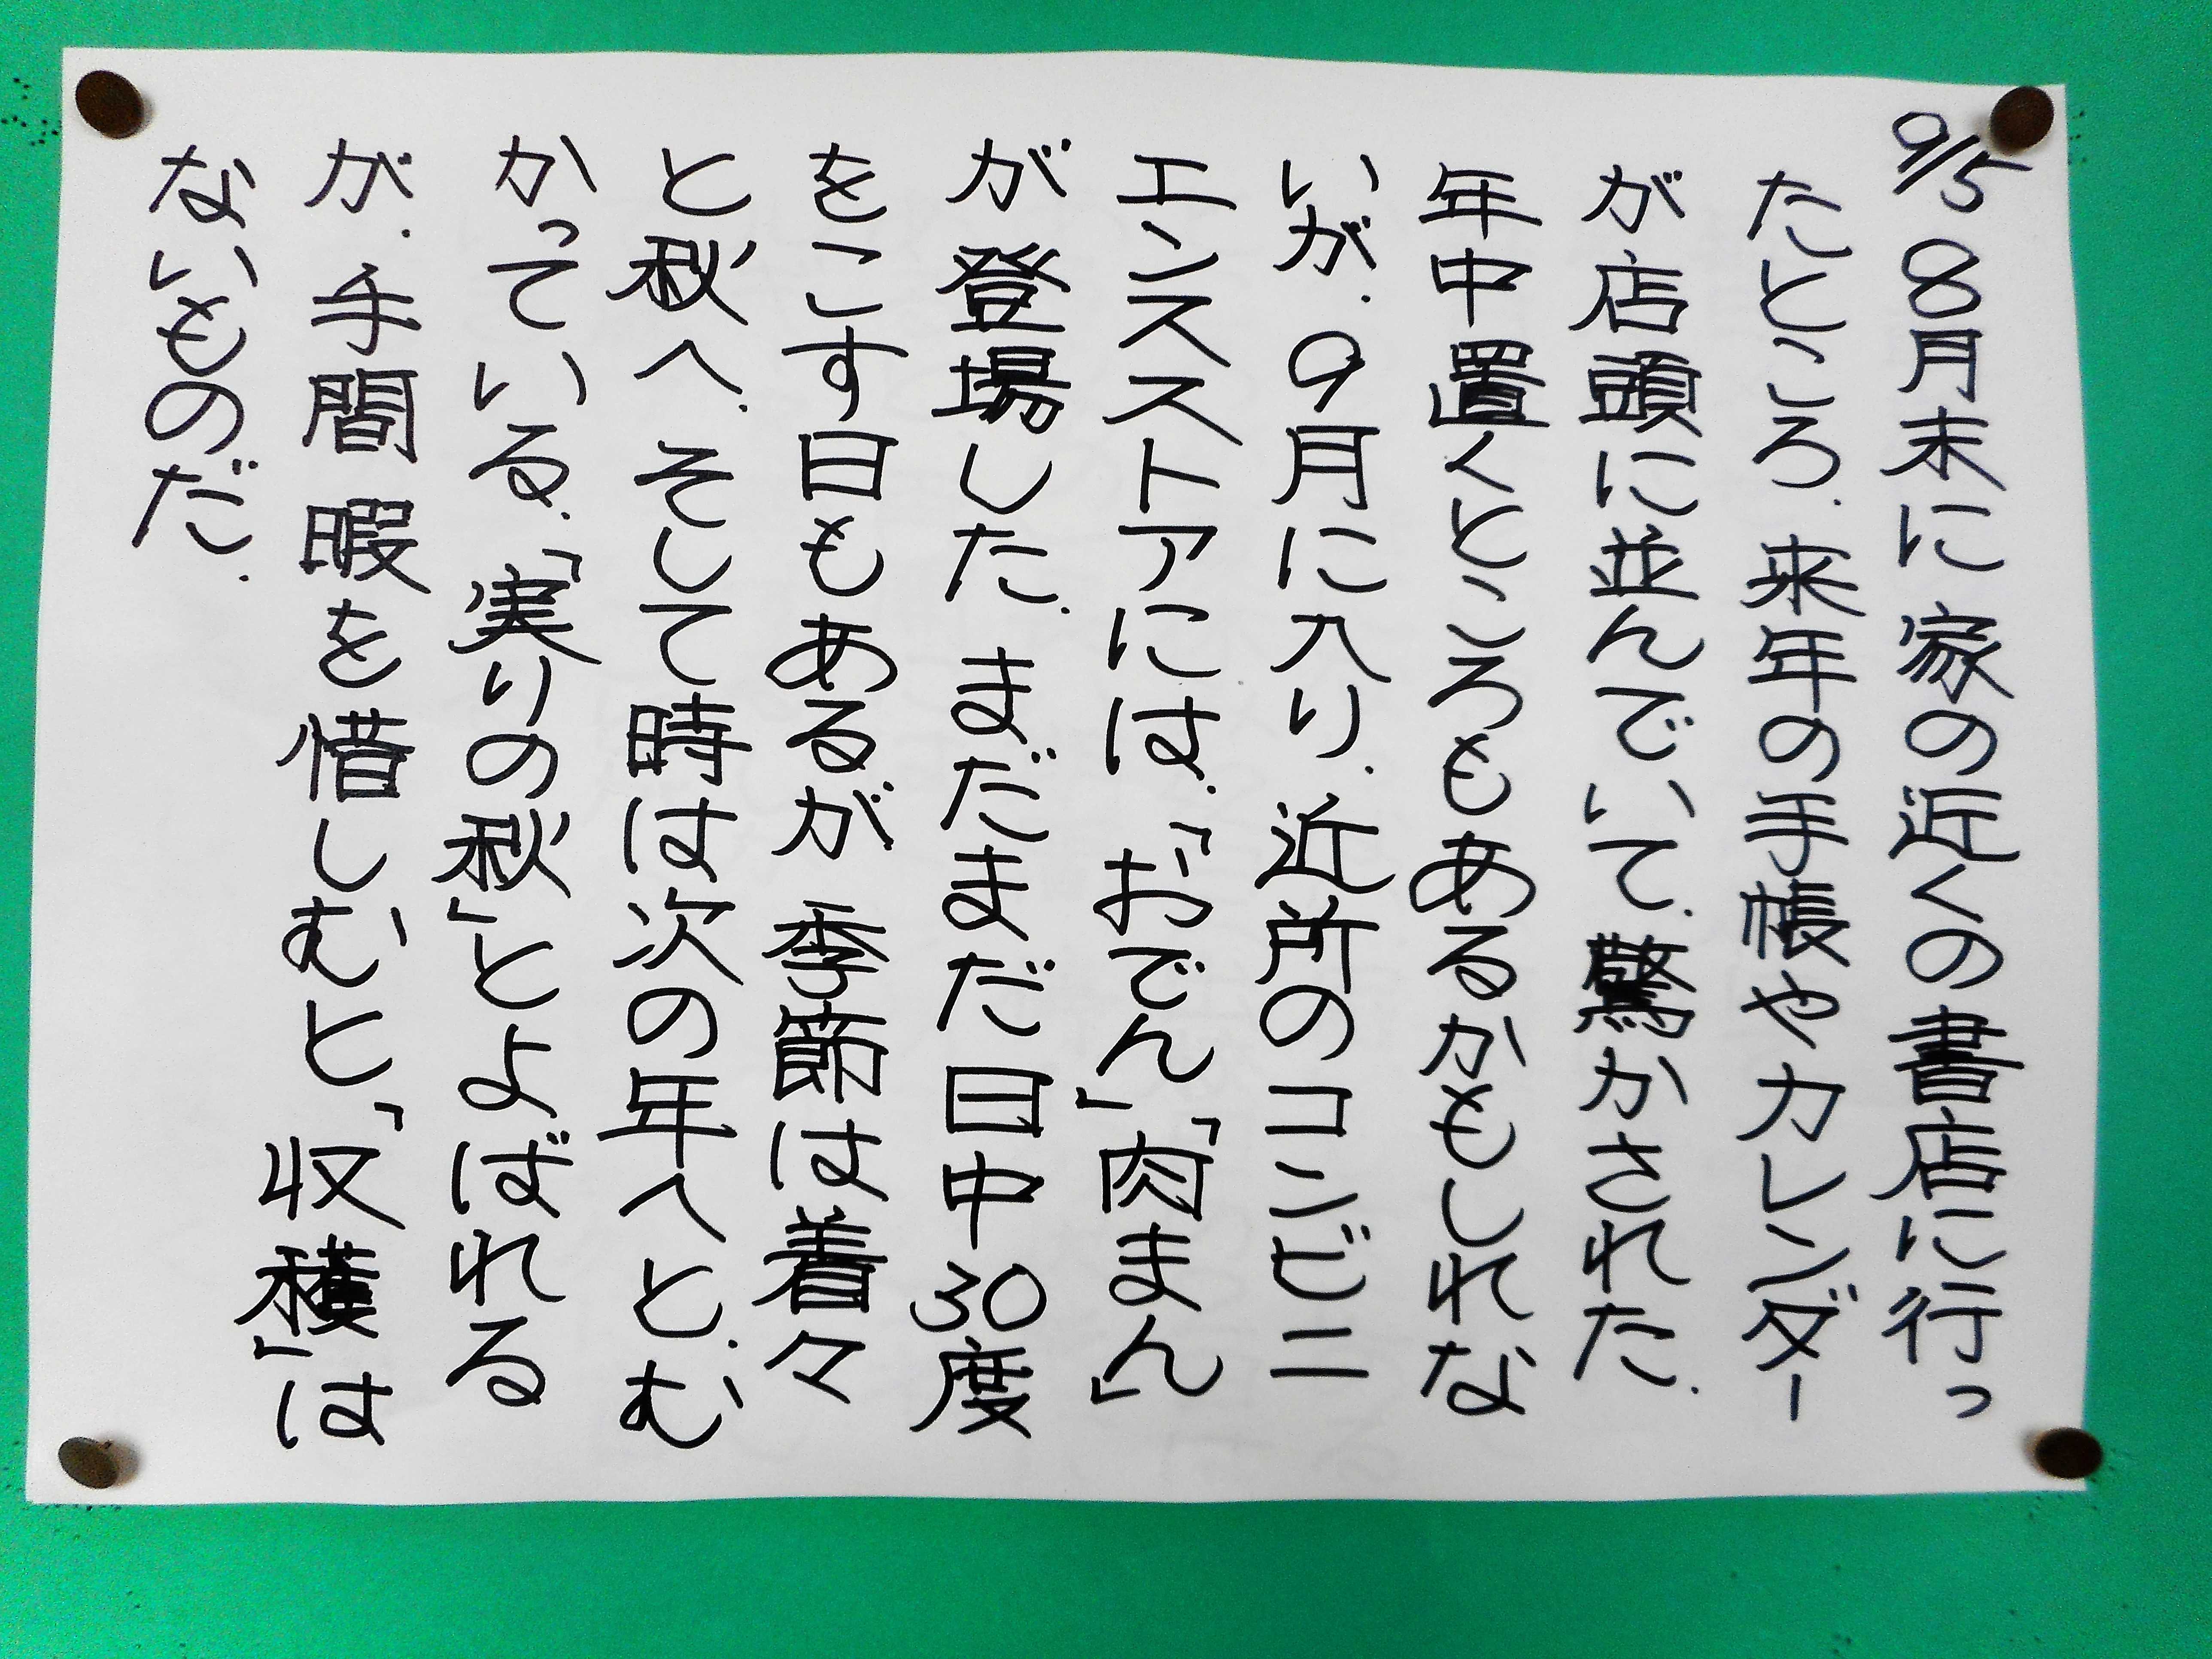 9/5 8月末に家の近くの書店に行っ
たところ.来年の手帳やカレンダー
が店頭に並んでいて.驚かされた.
年中置くところもあるかもしれな
いが.9月に入り.近所のコンビニ
エンスストアには.「おでん」「肉まん」
が登場した.まだまだ日中30度
をこす日もあるが季節は着々
と秋へ.そして時は次の年へと.む
かっている.「実りの秋」とよばれる
が.手間暇を惜しむと「収穫」は
ないものだ.